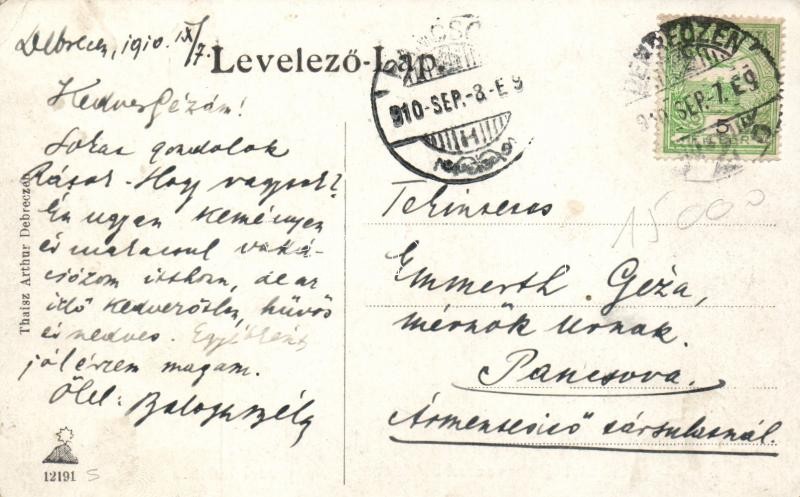 Debreczen, 1910. IX/7.
Levelező-Lap.
PANCSO
910-SEP.-8-E 9
DEBRECZEN
910 SEP. 7. E 9
5
Kedves Gézám!
Sokat gondolok
Rátok - Hogy vagytok?
Én ugyan keményen
és
itthon, de az
idő kedvezőtlen, hűvös
és nedves. Egyébként
jól érzem magam.
Ölel: Balogh Béla
Thaisz Arthur Debreczen
12191
Tekintetes
15000
Emmerth Géza,
mérnök urnak.
Pancsova.
Ármentesítő társulatnál.